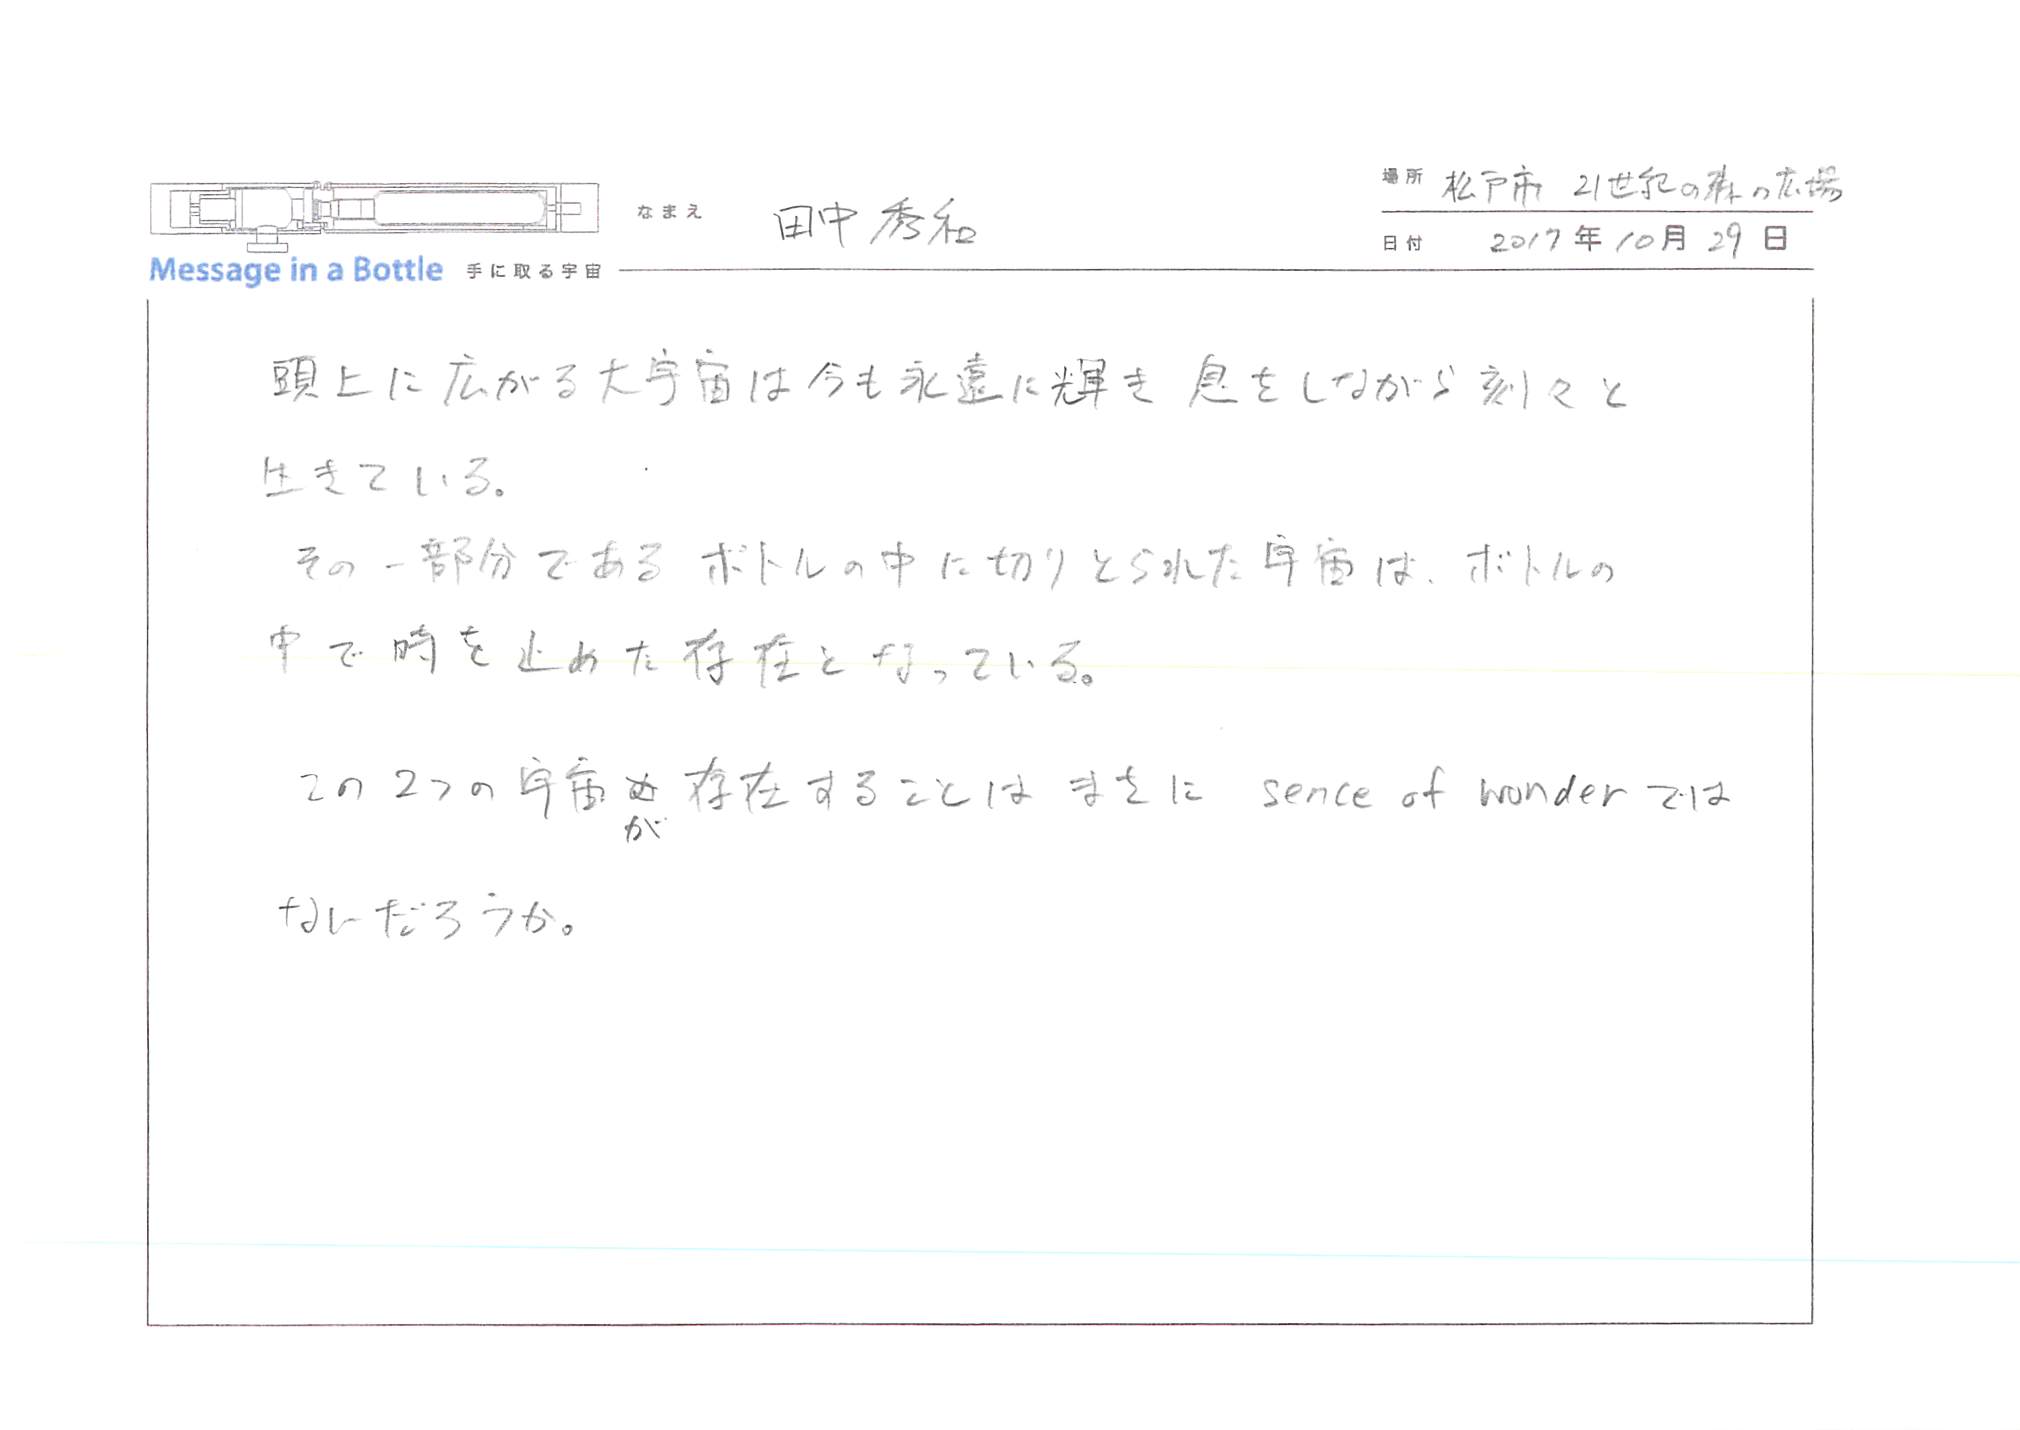 場所 松戸市 21世紀の森の広場
なまえ 田中秀和
日付 2017年10月29日
Message in a Bottle 手に取る宇宙
頭上に広がる大宇宙は今も永遠に輝き 息をしながら刻々と
生きている。
その一部分である ボトルの中に切りとられた宇宙は、ボトルの
中で時を止めた存在となっている。
この2つの宇宙が存在することは まさに sence of wonder では
ないだろうか。